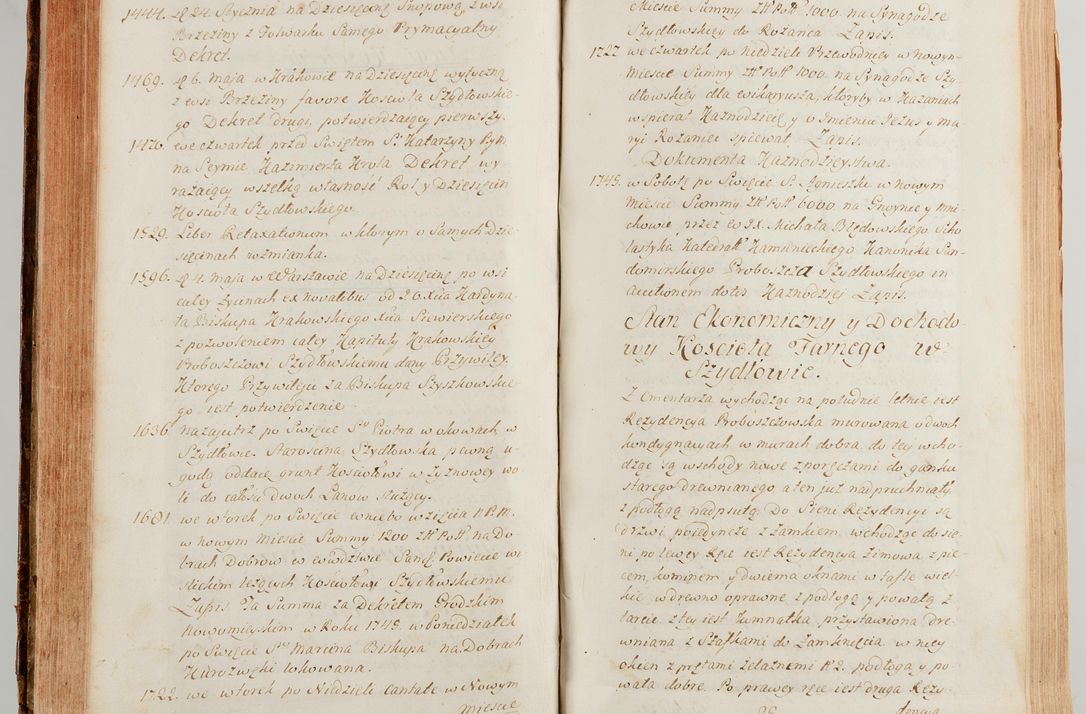 1444. d 24. Stycznia na Dziesięcinę Snopową z wsi
Brzeziny z Folwarku Samego Prymacyalny
Dekret.
1469. d 6. maja w Krakowie na Dziesięcinę wytyczną
z wsi Brzeziny favore Kościoła Szydłowskie-
go Dekret drugi, potwierdzaiący pierwszy.
1476. we czwartek przed Swiętem S. Katarzyny Pym
na Seymie Kazimierza Krola Dekret wy-
rażaiący wszelką własność Roly Dziesięcin
Kościoła Szydłowskiego
1529. Liber Retaxationum w ktorym o Samych Dzie-
sięcinach wzmianka.
1596. d 4. maja w Warszawie na Dziesięcinę po wsi
całey Życinach ex novalibus od J. O. Xcia Kardyna-
ła Biskupa Krakowskiego Xcia Siewierskiego
z pozwoleniem całey Kapituły Krakowskiey
Proboszczowi Szydłowskiemu dany Przywiley.
Ktorego Przywileju za Biskupa Szyszkowskie-
go iest potwierdzenie
1636. nazajutrz po Swięcie S. Piotra w okowach w
Szydłowie. Starościna Szydłowska pewną u-
godą oddaie grunt Kościołowi w Żyznowey wo
li do całości dwoch Łanow służący.
1681. we wtorek po Swięcie wniebo wzięcia N. P. M.
w nowym Miescie Summy 1200 Zł. Poll. na Do-
brach Dobrow w ewodztwie Sand. Powiecie wi-
slickim leżących Kościołowi Szydłowskiemu
Zapis. Ta Summa za Dekretem Grodzkim
nowomieyskim w Roku 1748. w Poniedziałek
po Swięcie S. Marcina Biskupa na Dobrach
Kurozwęki lokowana.
1722. we wtorek po Niedzieli Cantate w Nowym
miescie
Miescie Summy Zł. Poll. 1000. na Synagodze
Szydłowskiey do Rożańca Zapis.
1727. we czwartek po Niedzieli Przewodniey w Nowym
Miescie Summy Zł. Poll. 1000. na Synagodze Szy-
dłowskiey dla wikaryusza, ktoryby w Kazaniach
wspierał Kaznodzieię y o Imieniu Jezus y Ma-
ryi Rożaniec spiewał, Zapis.
Dokumenta Kaznodzieystwa.
1745. w Sobotę po Swięcie S. Agnieszki w nowym
Miescie Summy Zł. Poll. 6000 na Gnoynie y Mni-
chowie przez ś. p. J. X. Michała Błędowskiego Scho
lastyka Katedral. Kamienieckiego Kanonika San-
domirskiego Proboszcza Szydłowskiego in
auctionem dotis Kaznodziej Zapis.
Stan Ekonomiczny y Dochodo-
wy Kościoła Farnego w
Szydłowie.
Z Cmentarza wychodząc na południe letnie iest
Rezydencya Proboszczowska murowana o dwoch
kondygnacyach w murach dobra. do tey wcho-
dząc są wschody nowe z poręczami do ganku
starego drewnianego a ten już nadpruchniały,
z podłogą nadpsutą. Do Sieni Rezydencyi są
drzwi poiedyncze z Zamkiem, wchodząc do sie-
ni po lewey Ręce iest Rezydencya Zimowa z pie-
cem, kominem y dwiema oknami w tafle wiel-
kie w drewno oprawne z podłogą y powałą z
tarcic. z tey iest Kumnatka przystawiona Dre-
wniana z Szafkami do Zamknięcia. w niey
okien z prętami żelaznemi N. 2. podłoga y po-
wała dobre. Po prawey ręce iest druga Rezy-
dencya